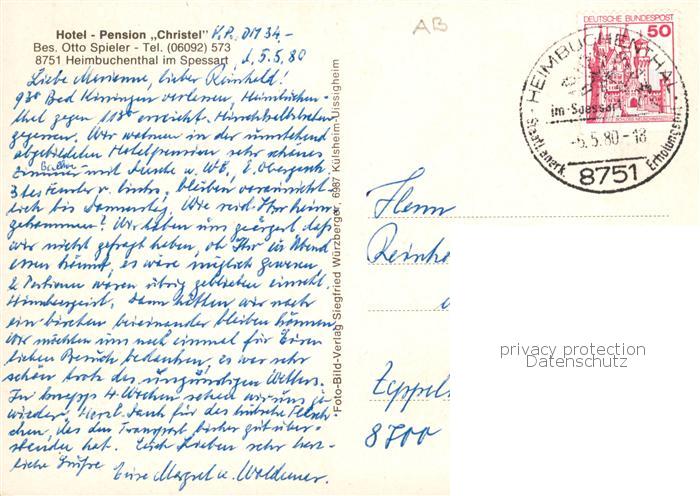 Hotel - Pension „Christel" V.P. DM 34-
Bes. Otto Spieler - Tel. (06092) 573
8751 Heimbuchenthal im Spessart, d, 5.5.80
Liebe Marianne, lieber Reinhold!
9³⁰ Bad Kissingen verlassen, Heimbuchen-
thal gegen 11³⁰ erreicht. Hirschkalbsbraten
gegessen. Wir wohnen in der umstehend
abgebildeten Hotelpension sehr schönes
Balkon-
zimmer mit Dusche u. WC, 1. Obergesch.
3 tes Fenster v. links, bleiben voraussicht-
lich bis Donnerstag. Wie seid Ihr heim
gekommen? Wir haben uns geärgert daß
wir nicht gefragt haben, ob Ihr zu Abend
essen könnt, es wäre möglich gewesen
2 Portionen wären übrig geblieben einschl.
Himbeergeist. Dann hätten wir noch
ein bißchen beieinander bleiben können
Wir möchten uns noch einmal für Euren
lieben Besuch bedanken, es war sehr
schön trotz des ungünstigen Wetters.
In knapp 4 Wochen sehen wir uns ja
wieder. Herzl. Dank für das hübsche
chen, das den Transport bisher gut über-
standen hat. Euch Lieben sehr herz-
liche Grüße
Eure Margret u. Waldemar.
Foto-Bild-Verlag Siegfried Würzberger, 6987 Külsheim-Uissigheim
AB
DEUTSCHE BUNDESPOST
50
HEIMBUCHENTHAL
im Spessart
-5.5.80-18
8751
Staatl. anerk. Erholungsort
Herrn
Reinho
Zeppel
8700
privacy protection
Datenschutz